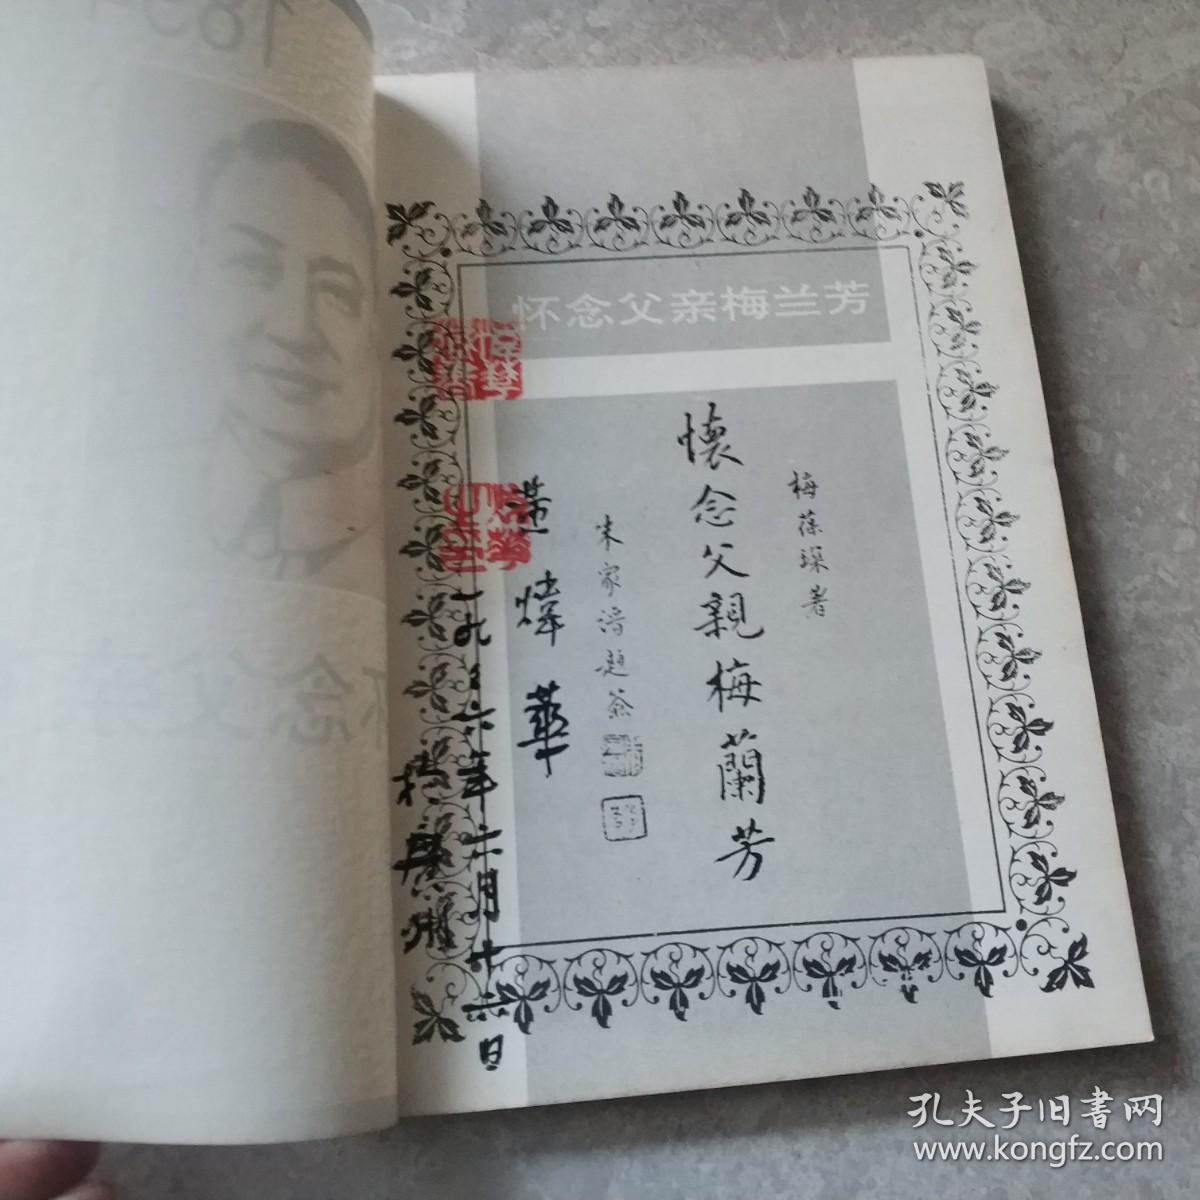 怀念父亲梅兰芳
梅葆琛著
懷念父親梅蘭芳
朱家溍題簽
煒華
一九八六年六月十六日
於
孔夫子旧書网
www.kongfz.com